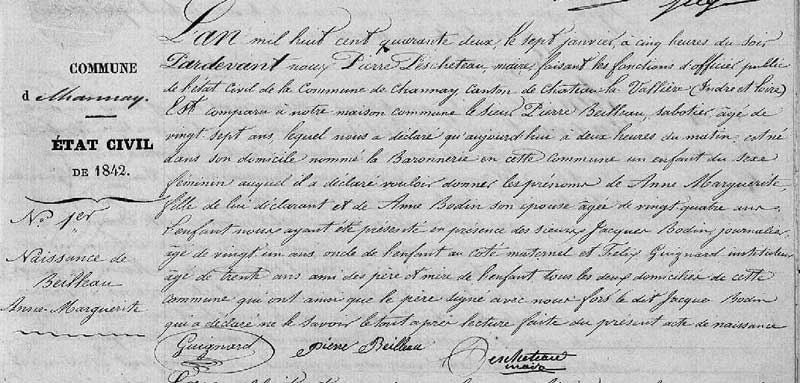 COMMUNE
d Channay.
ÉTAT CIVIL
DE 1842.
N° 1er
Naissance de
Beilleau
Anne-Marguerite
L'an mil huit cent quarante deux, le sept janvier, à cinq heures du soir
Pardevant nous Pierre Descheteau, maire, faisant les fonctions d'officier public
de l'état Civil de la Commune de Channay Canton de Chateau-la-Vallière (Indre et Loire)
Est comparu à notre maison commune le sieur Pierre Beilleau, sabotier, âgé de
vingt sept ans, lequel nous a déclaré qu'aujourd'hui à deux heures du matin, est né
dans son domicile nommé la Baronnerie en cette commune un enfant du sexe
féminin auquel il a déclaré vouloir donner les prénoms de Anne Marguerite,
fille de lui déclarant et de Anne Bodin son epouse âgée de vingt quatre ans
l'enfant nous ayant été présenté en présence des sieurs Jacques Bodin, journalier,
âgé de vingt un ans, oncle de l'enfant au coté maternel et Felix Guignard instituteur
âgé de trente ans ami des père et mère de l'enfant tous les deux domiciliés de cette
commune qui ont ainsi que le père signé avec nous fors le dit Jacque Bodin
qui a déclaré ne le savoir le tout après lecture faite du présent acte de naissance
Guignard pierre Beilleau Descheteau
maire